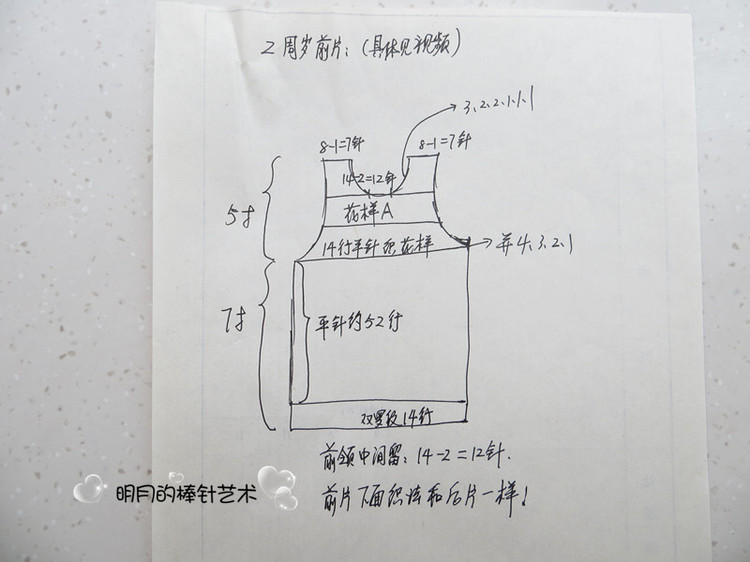 2周岁前片：(具体见视频)
3、2、2、1、1、1
8-1=7针
8-1=7针
14-2=12针
花样A
5寸
14行平针织花样
并4、3、2、1
7寸
平针约52行
双罗纹14行
前领中间留：14-2=12针.
前片下面织法和后片一样！
明月的棒针艺术